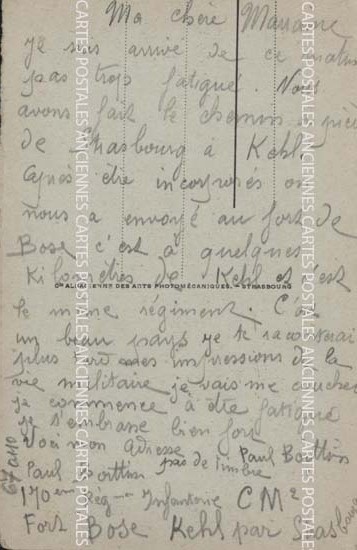 Ma chère Marraine
je suis arrivé de ce matin
pas trop fatigué. Nous
avons fait le chemin à pied
de Strasbourg à Kehl
Après être incorporés on
nous a envoyé au fort de
Bose c'est à quelques
Kilomètres de Kehl et c'est
Cie ALSACIENNE DES ARTS PHOTOMÉCANIQUES. - STRASBOURG
le meme régiment. C'est
un beau pays je te raconterai
plus tard mes impressions de la
vie militaire je vais me coucher
je commence à être fatigué
je t'embrasse bien fort
Voici mon Adresse Paul
pas de timbre
Paul
170 eme Rég Infanterie CM2
Fort Bose Kehl par Strasbourg
CARTES POSTALES ANCIENNES CARTES POSTALES ANCIENNES